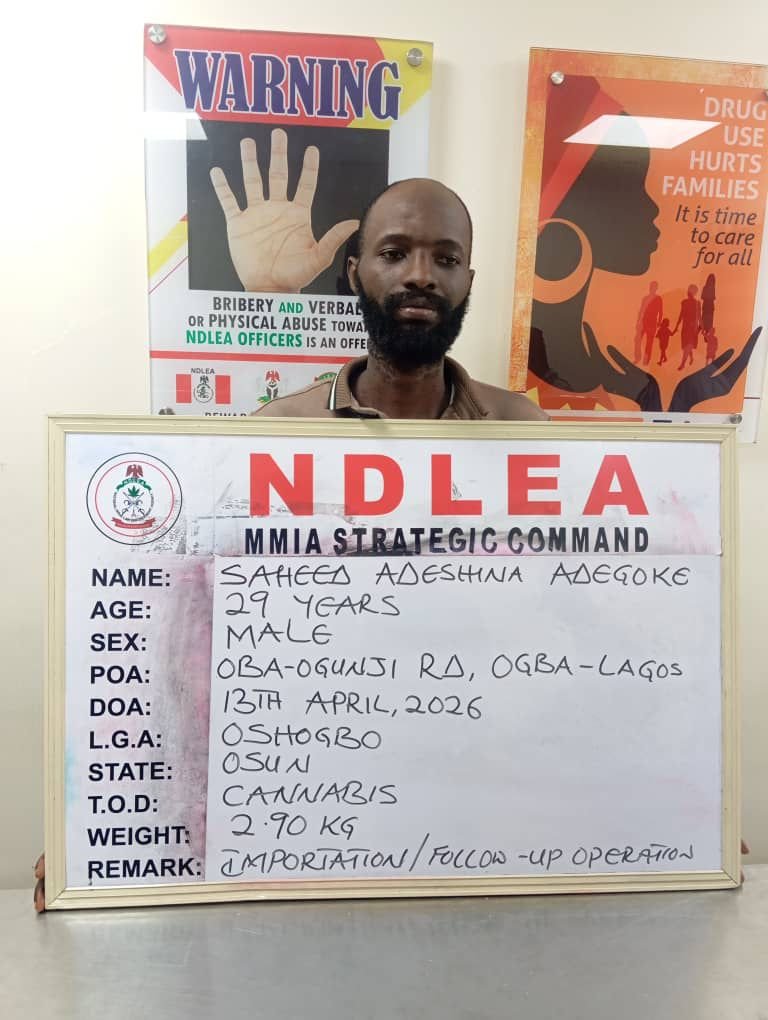 WARNING
BRIBERY AND VERBAL
OR PHYSICAL ABUSE TOWA
NDLEA OFFICERS IS AN OFFE
NDLEA
DRUG
USE
HURTS
FAMILIES
It is time
to care
for all
NDLEA
MMIA STRATEGIC COMMAND
NAME: SAHEED ADESHINA ADEGOKE
AGE: 29 YEARS
SEX: MALE
POA: OBA-OGUNJI RD, OGBA-LAGOS
DOA: 13TH APRIL, 2026
L.G.A: OSHOGBO
STATE: OSUN
T.O.D: CANNABIS
WEIGHT: 2.90 KG
REMARK: IMPORTATION/FOLLOW-UP OPERATION